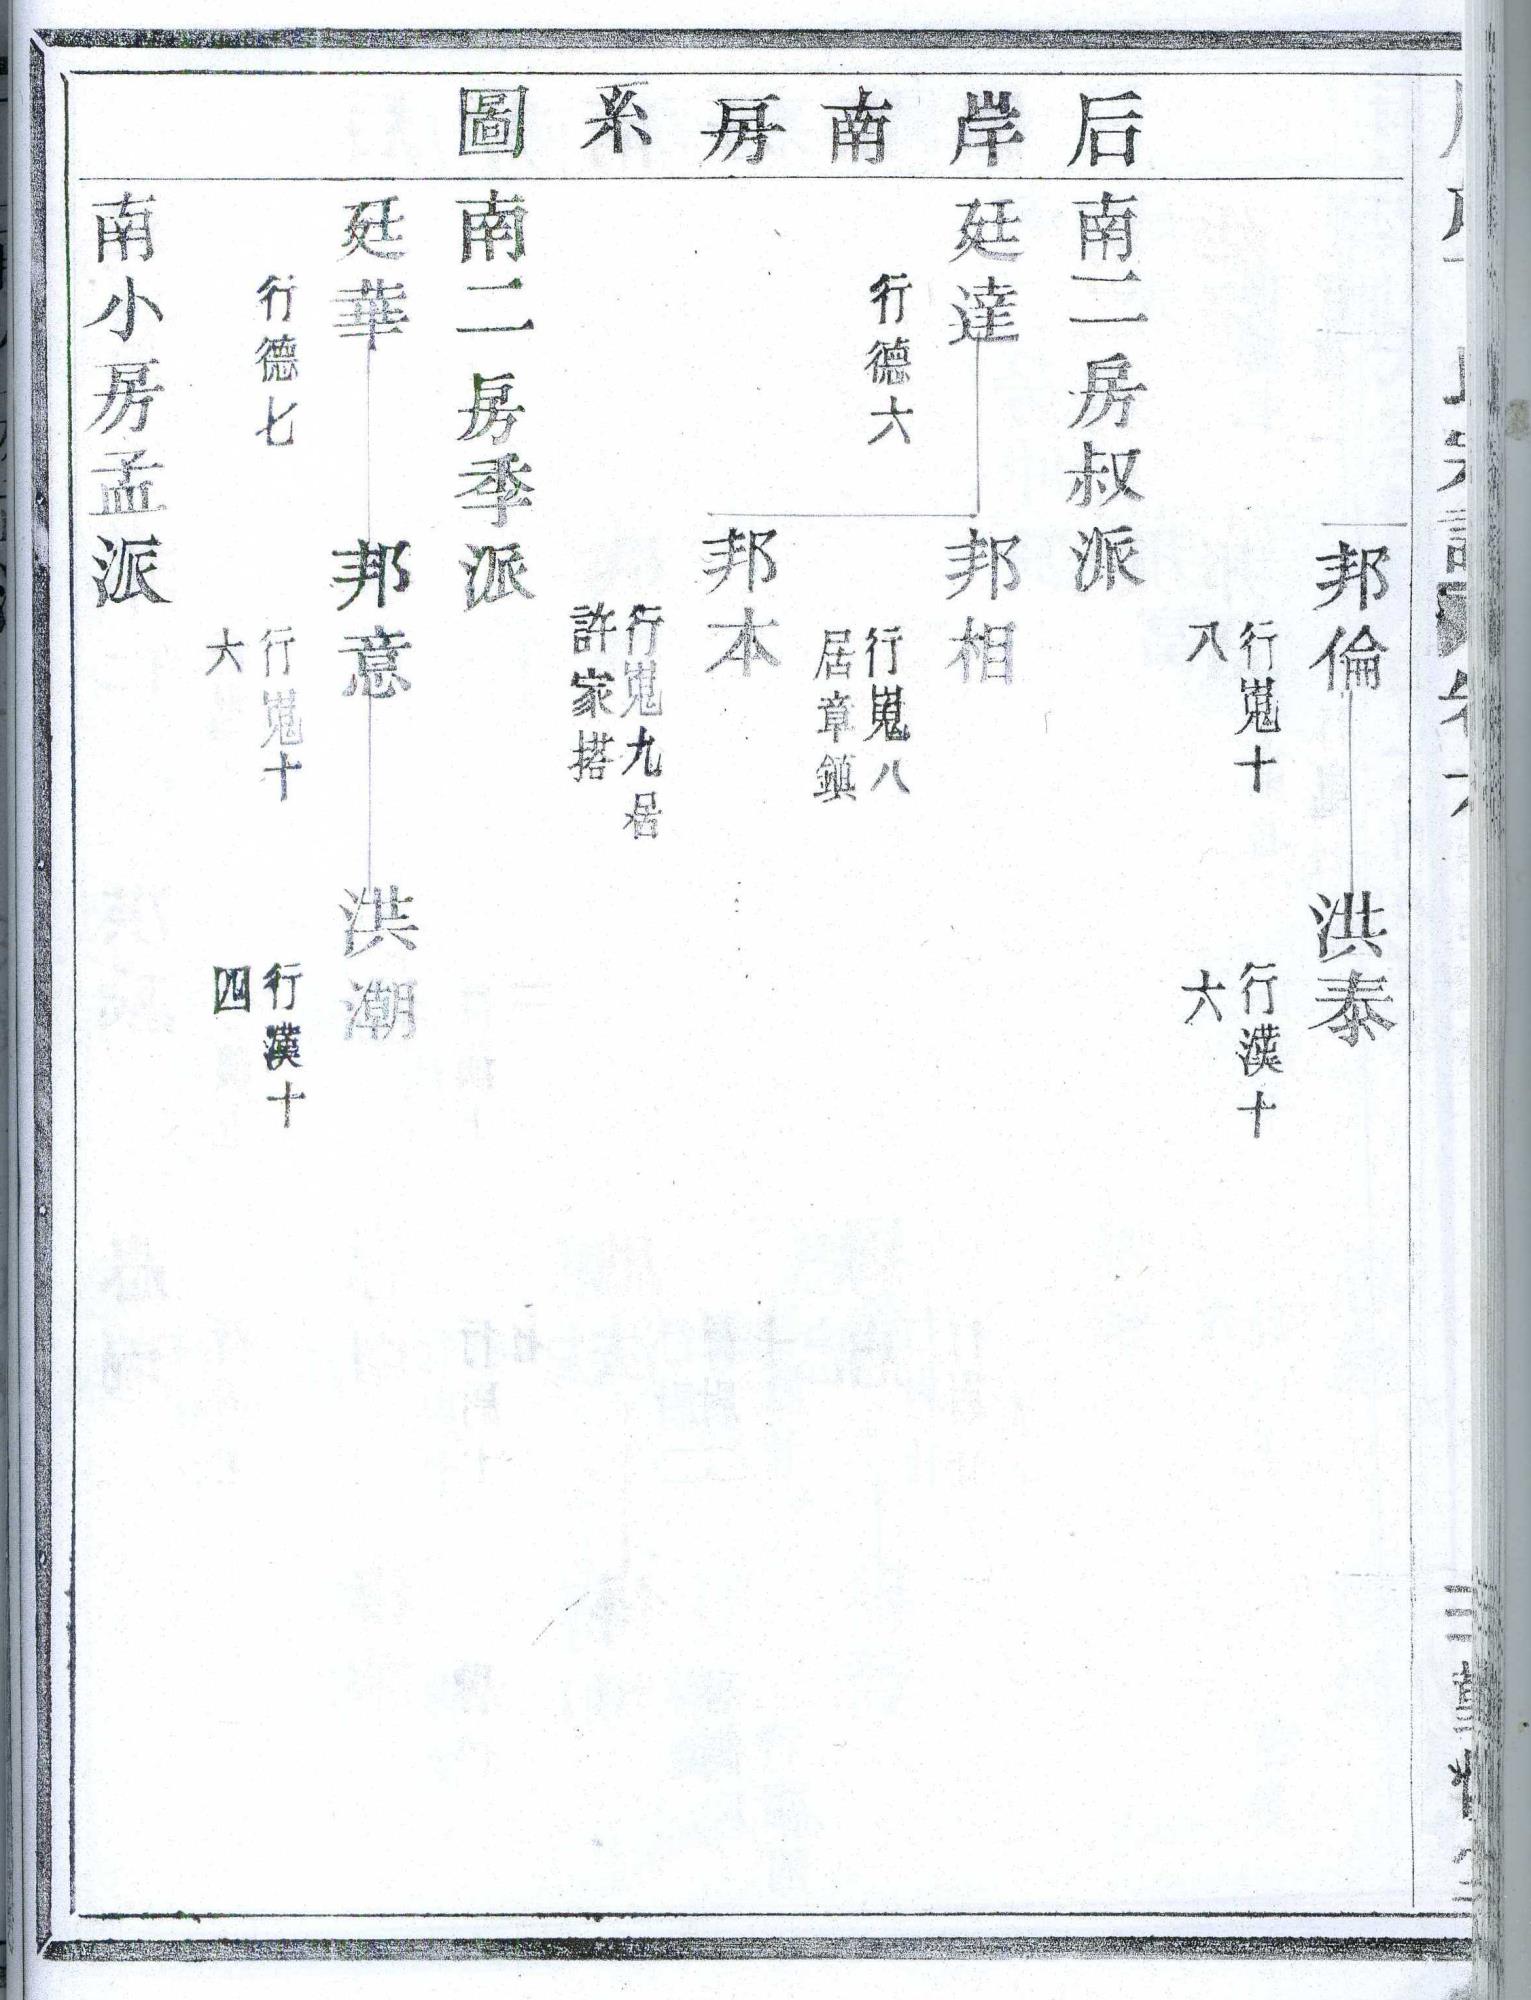 后岸南房系圖
邦倫
行嵬十
八
洪泰
行漢十
六
南二房叔派
廷達
行德六
邦相
行嵬八
居章鎮
邦本
行嵬九居
許家搭
南二房季派
廷華
行德七
邦意
行嵬十
六
洪潮
行漢十
四
南小房孟派